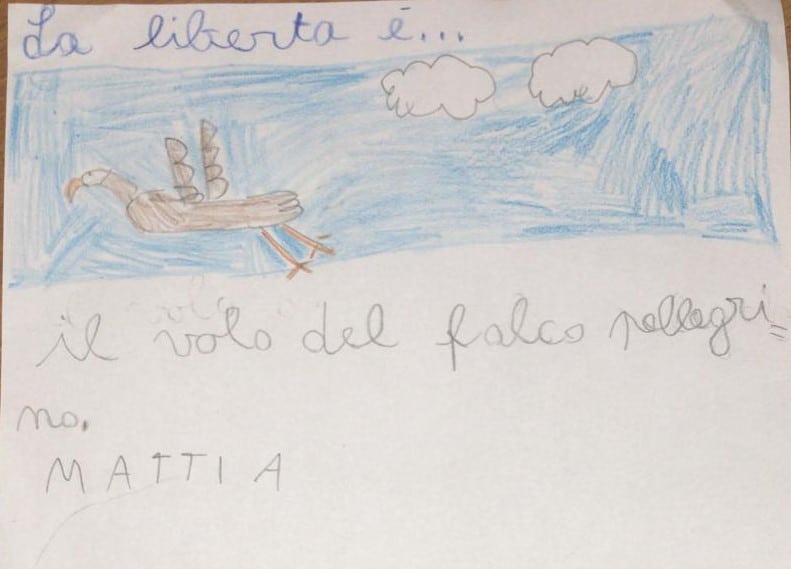 La liberta è...
il volo del falco pellegri=
no.
MATTIA